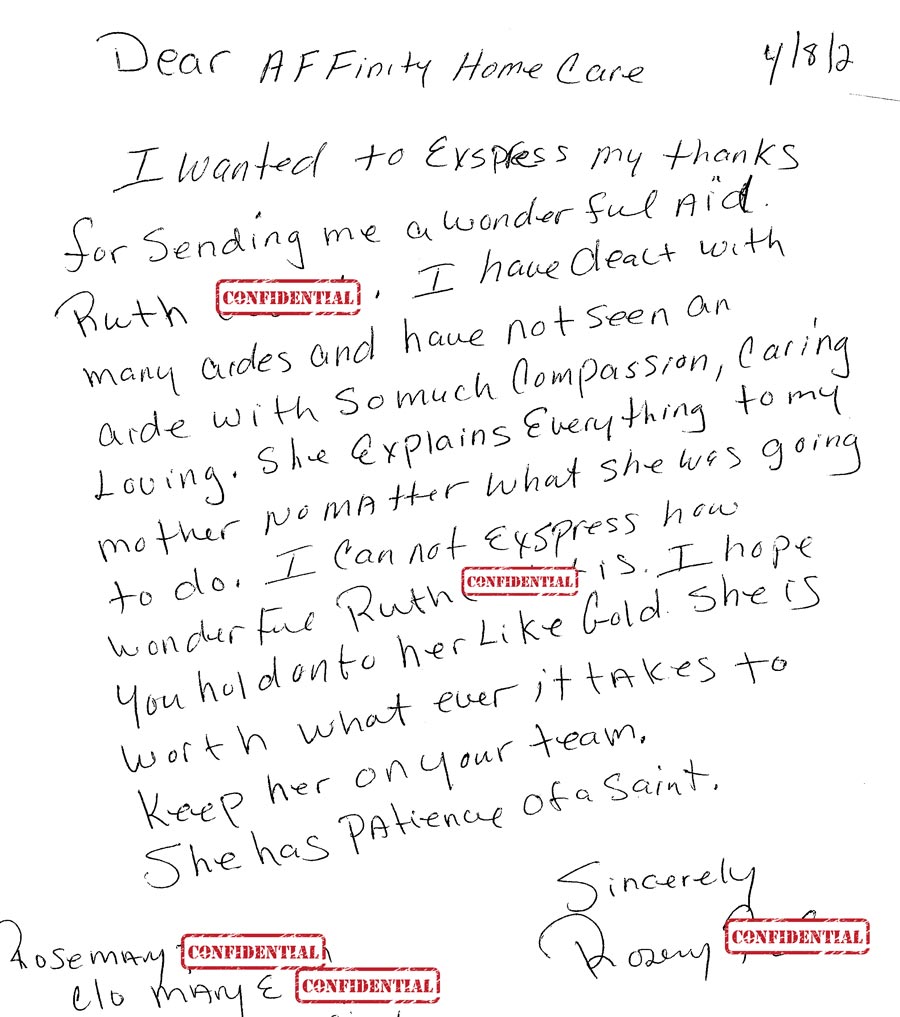 Dear AFFinity Home Care 4/8/2
I wanted to Exspress my thanks
for Sending me a wonderful Aid.
Ruth CONFIDENTIAL. I have dealt with
many aides and have not seen an
aide with Somuch Compassion, Caring
Loving. She Explains Everything to my
mother NO MAtter what she was going
to do. I Can not Exspress how
wonderful Ruth CONFIDENTIAL is. I hope
You hold onto her Like Gold. She is
worth what ever it tAkes to
Keep her on your team.
She has PAtience Of a Saint.
Sincerely
Rosemary CONFIDENTIAL
c/o MAry E CONFIDENTIAL
CONFIDENTIAL